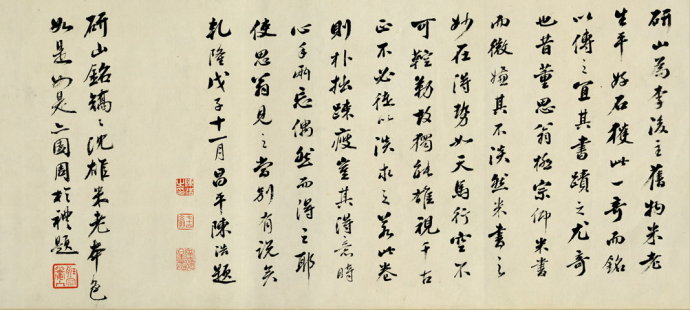 研山為李後主舊物米老
生平好石獲此一奇而銘
以傳之宜其書蹟之尤奇
也昔董思翁極宗仰米書
而微嫌其不淡然米書之
妙在得勢如天馬行空不
可鞚勒故獨能雄視千古
正不必徒以淡求之若此卷
則朴拙疎瘦豈其得意時
心手兩忘偶然而得之耶
使思翁見之當別有說矣
乾隆戊子十一月昌平陳浩題
研山銘鎬之沈雄米老本色
如是如是 周於禮題